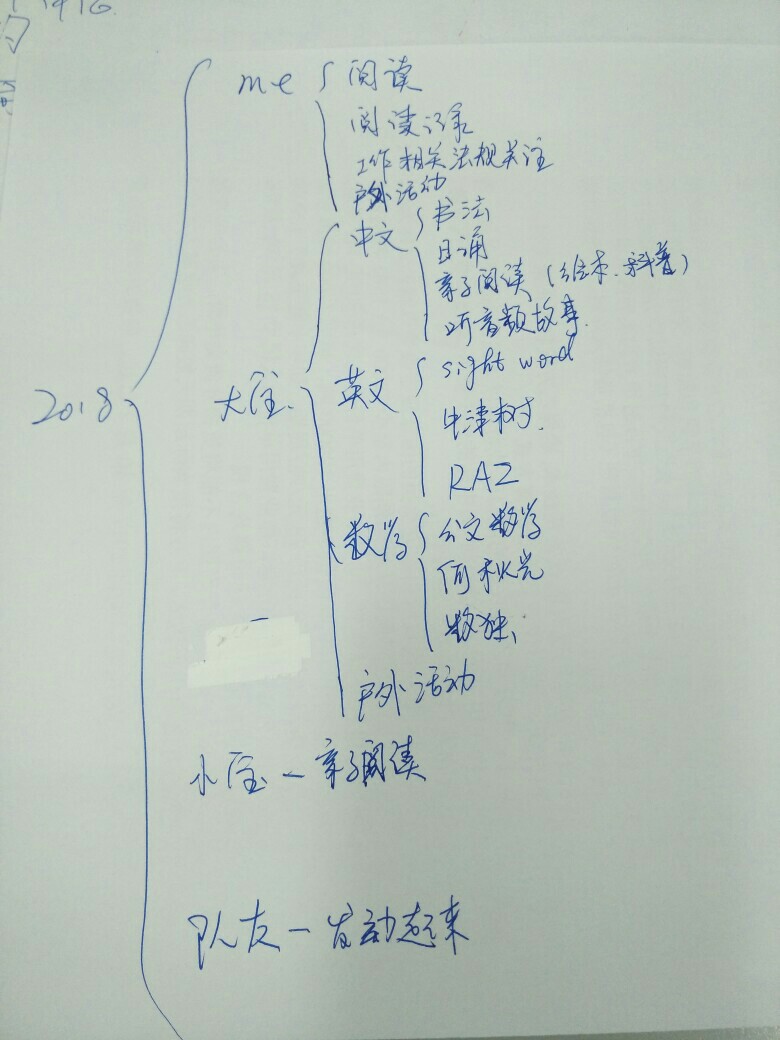 me 阅读
阅读记录
工作相关法规关注
户外活动
中文 书法
日诵
亲子阅读（绘本、科普）
听音频故事
2018
大宝
英文 sight word
牛津树
RAZ
数学 公文数学
何秋光
数独
户外活动
小宝—亲子阅读
队友—发动起来